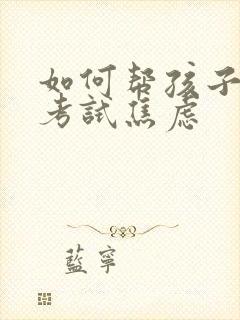 如何帮孩子
考試焦虑
藍寧